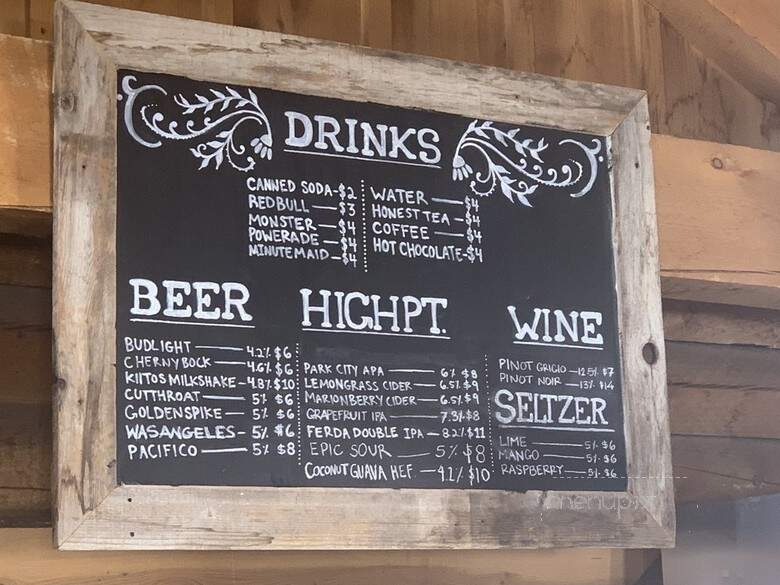 DRINKS
CANNED SODA-$2
REDBULL — $3
MONSTER — $4
POWERADE — $4
MINUTEMAID — $4
WATER — $4
HONEST TEA — $4
COFFEE — $4
HOT CHOCOLATE-$4
BEER
BUDLIGHT — 4.2% $6
CHERNYBOCK — 4.6% $6
KIITOS MILKSHAKE — 4.8% $10
CUTTHROAT — 5% $6
GOLDENSPIKE — 5% $6
WASANGELES — 5% $6
PACIFICO — 5% $8
HIGHPT.
PARK CITY APA — 6% $8
LEMONGRASS CIDER — 6.5% $9
MARIONBERRY CIDER — 6.5% $9
GRAPEFRUIT IPA — 7.3% $8
FERDA DOUBLE IPA — 8.2% $11
EPIC SOUR — 5% $8
COCONUT GUAVA HEF — 4.1% $10
WINE
PINOT GRIGIO — 12.5% $7
PINOT NOIR — 13% $14
SELTZER
LIME — 5% $6
MANGO — 5% $6
RASPBERRY — 5% $6
menupix